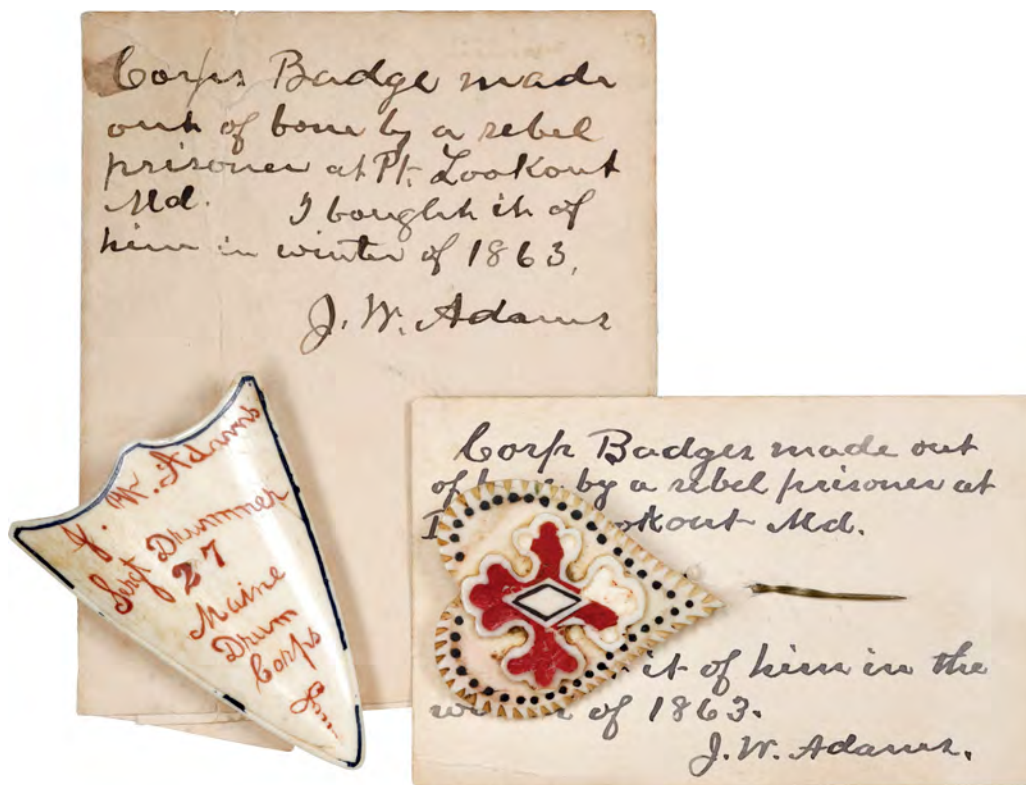 Corps Badge made
out of bone by a rebel
prisoner at Pt. Lookout
Md. I bought it of
him in winter of 1863,
J. W. Adams
J. W. Adams
Sergt Drummer
27
Maine
Drum
Corps
Corps Badges made out
of by a rebel prisoner at
Md.
it of him in the
of 1863.
J. W. Adams.